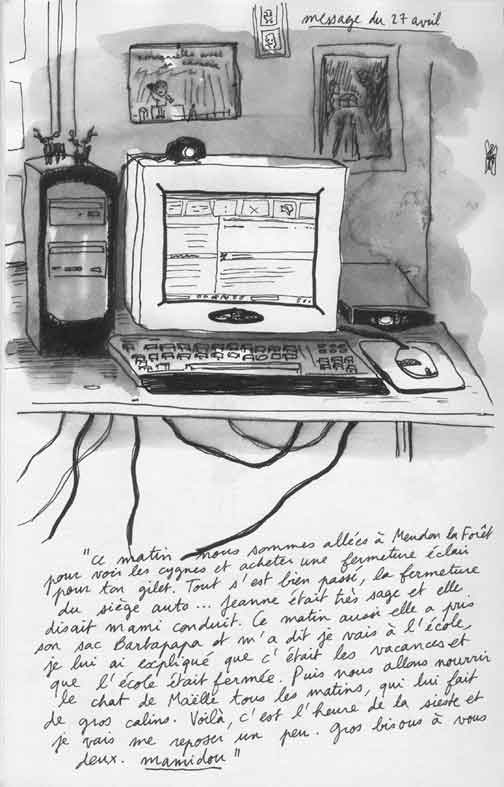 message du 27 avril
"Ce matin nous sommes allées à Meudon la Forêt
pour voir les cygnes et acheter une fermeture éclair
pour ton gilet. Tout s'est bien passé, la fermeture
du siège auto... Jeanne était très sage et elle
disait mami conduit. Ce matin aussi elle a pris
son sac Barbapapa et m'a dit je vais à l'école,
je lui ai expliqué que c'était les vacances et
que l'école était fermée. Puis nous allons nourrir
le chat de Maëlle tous les matins, qui lui fait
de gros calins. Voilà, c'est l'heure de la sieste et
je vais me reposer un peu. Gros bisous à vous
deux. mamidou"